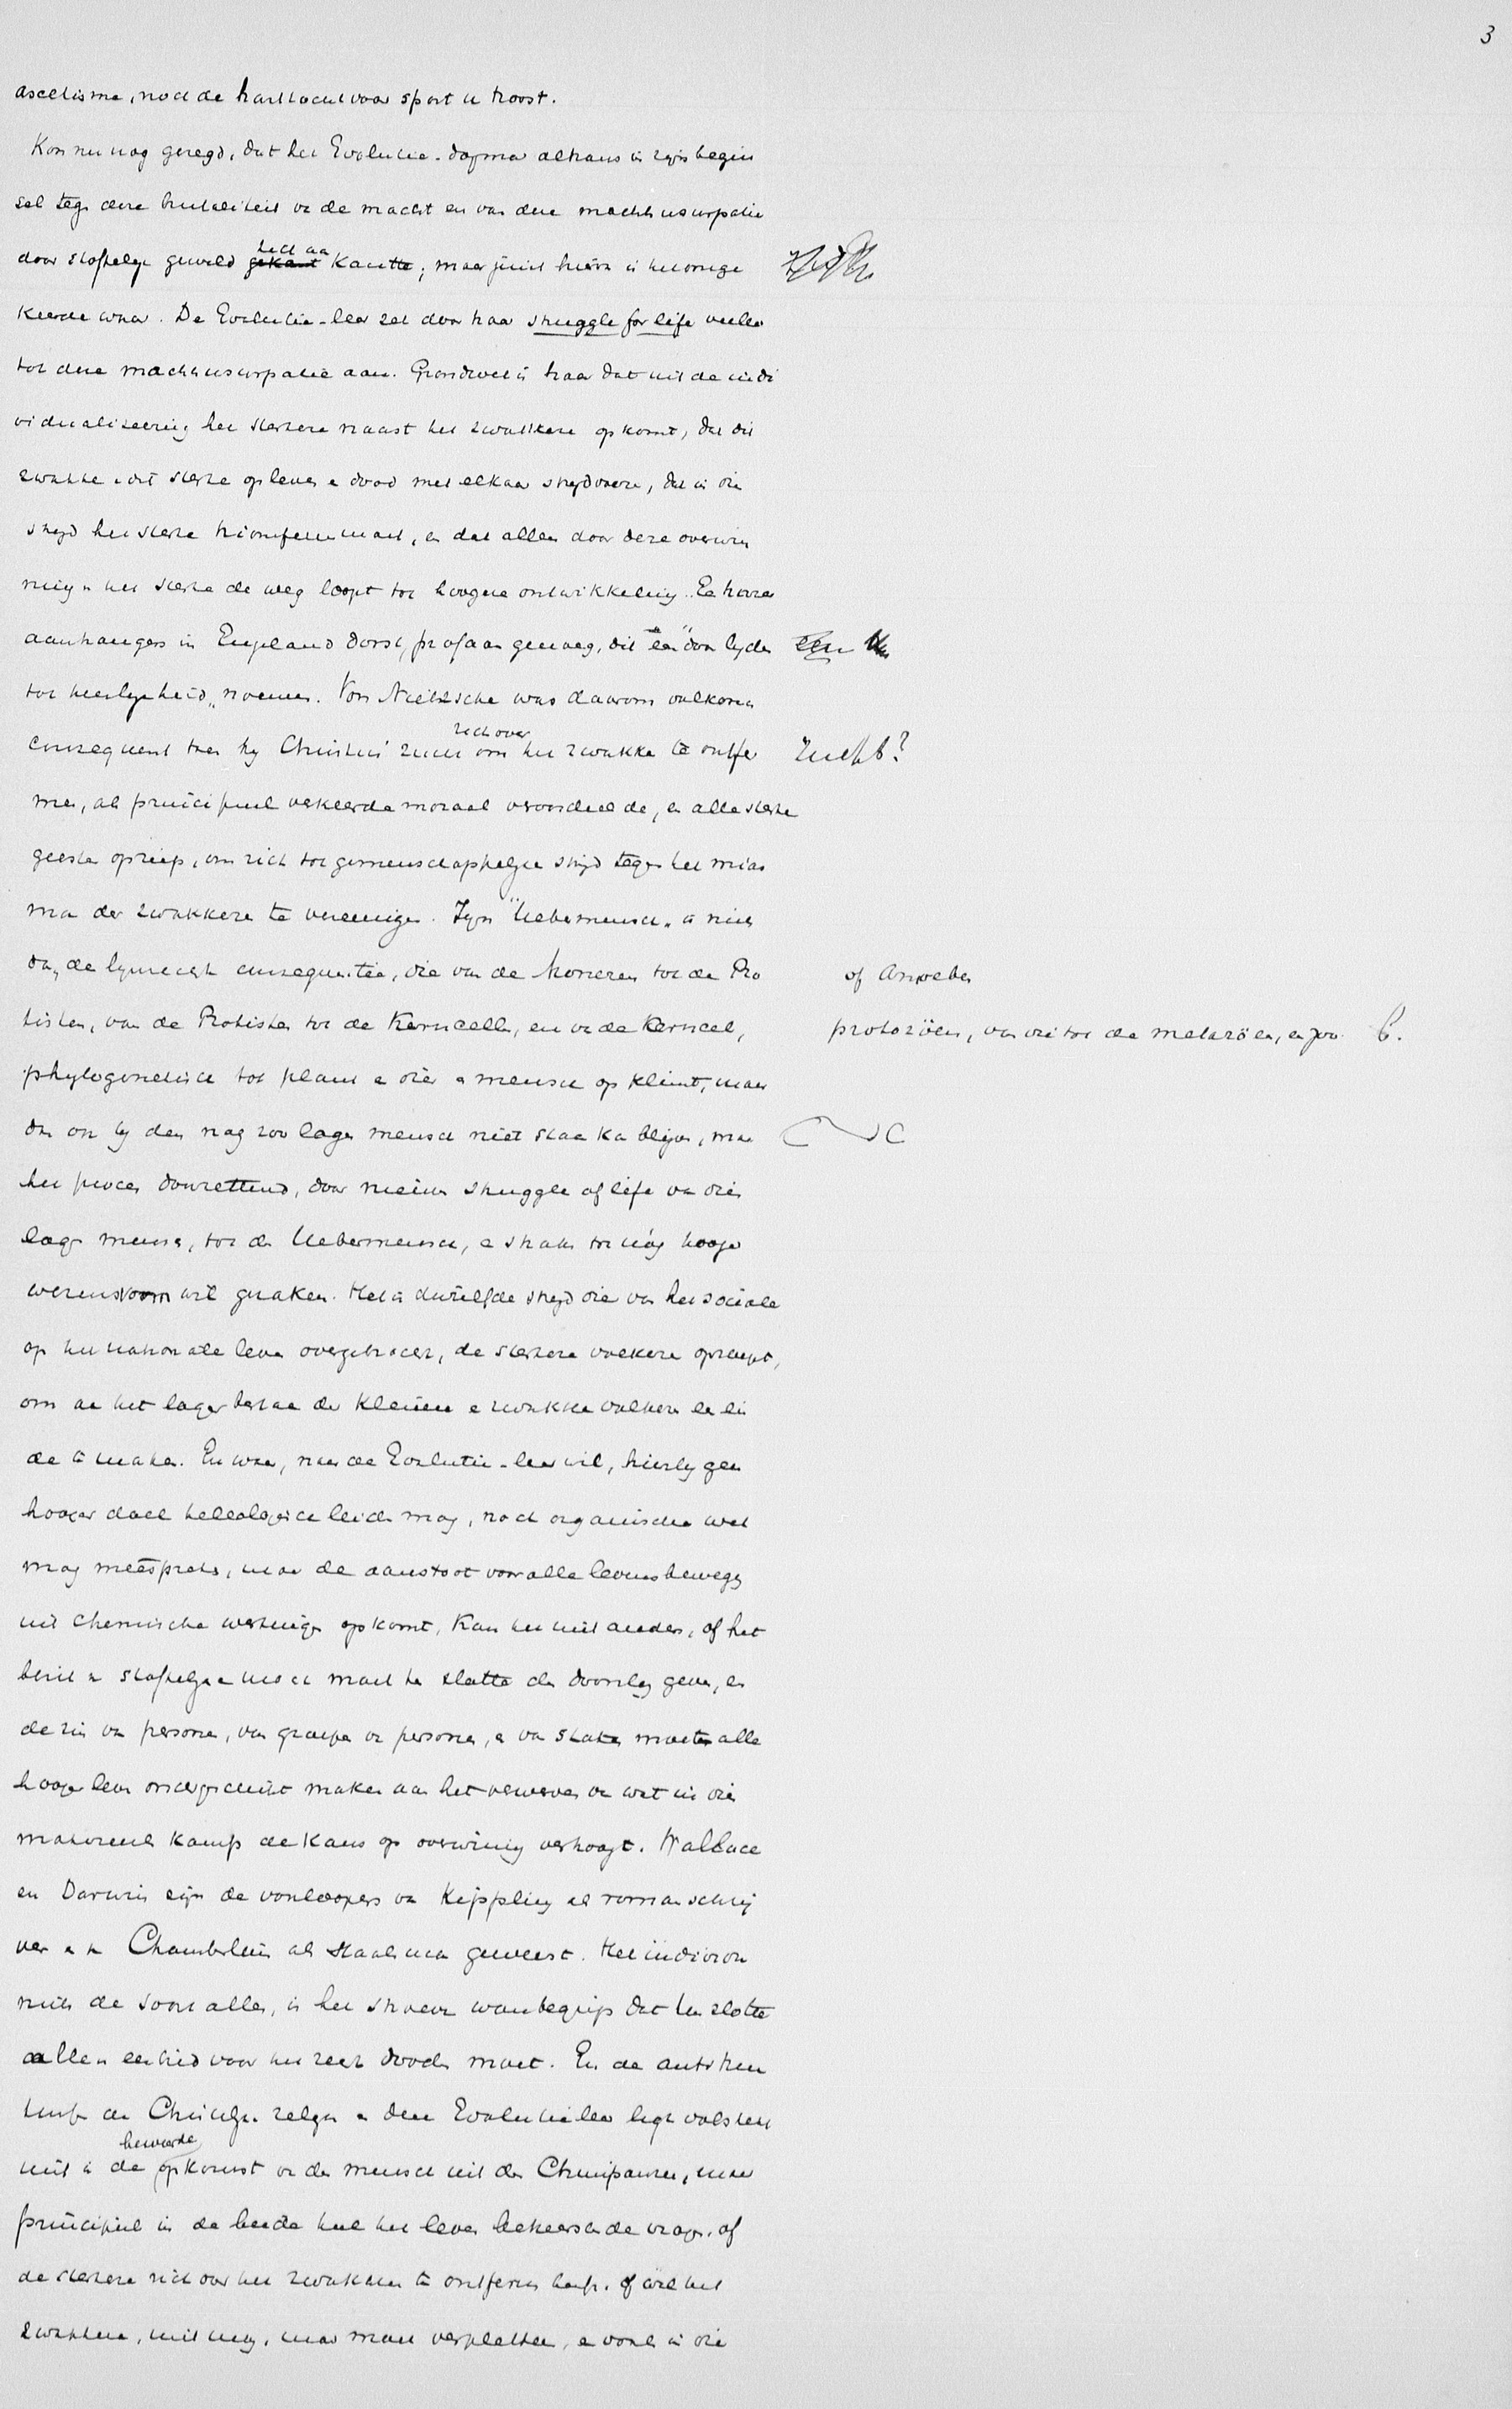 3
ascetisme, noch de hartstocht voor sport u troost.
Kon nu nog gezegd, dat het Evolutie-dogma althans in zijn begin
sel tegen deze brutaliteit v. de macht en van deze machtsusurpatie
door stoffelijk geweld zich aan kantte; maar juist hiervan is het omge
keerde waar. De Evolutie-leer zet door haar struggle for life veeleer
tot deze machtsusurpatie aan. Grondwet is haar dat uit de indi
vidualiseering het sterkere naast het zwakkere opkomt, dat dit
zwakke en dit sterke op leven en dood met elkaar strijd voere, dat in die
strijd het sterke triomfeeren moet, en dat alleen door deze overwin
ning v. het sterke de weg loopt tot hoogere ontwikkeling. Een harer
aanhangers in Engeland dorst, profaan genoeg, dit een "door lijden
tot heerlijkheid" noemen. Von Nietzsche was daarom volkomen
consequent toen hij Christus' zucht om zich over het zwakke te ontfer zucht?
men, als principieel verkeerde moraal veroordeelde, en alle sterke
geesten opriep, om zich tot gemeenschappelijke strijd tegen het mias
ma der zwakkeren te vereenigen. Zijn "Uebermensch" is niets
dan de logische consequentie, die van de Moneren tot de Pro of Amoeben
tisten, van de Protisten tot de Kerncellen, en v. de Kerncel, protozöen, van die tot de metazöen, en zoo
phylogenetisch tot plant en dier en mensch opklimt, maar
dan ook bij den nog zoo lagen mensch niet staan kan blijven, maar
het proces doorzettend, door nieuwe struggle of life van dien
lagen mensch, tot den Uebermensch, en straks tot nóg hooger
wezensvorm wil geraken. Het is dezelfde strijd die van het sociale
op het nationale leven overgebracht, de sterkere volkeren oproept,
om aan het lager bestaan der kleinere en zwakke volkeren een ein
de te maken. En waar, naar de Evolutie-leer wil, hierbij geen
hooger doel teleologisch leiden mag, noch organische wet
mag meêspreken, maar de aanstoot voor alle levensbeweging
uit chemische werkingen opkomt, kan het niet anders, of het
bezit v. stoffelijke macht moet ten slotte den doorslag geven, en
de zin van personen, van groepen v. personen, en van Staten moeten alle
hooger leven ondergeschikt maken aan het verwerven van wat in die
materieele kamp de kans op overwinning verhoogt. Wallace
en Darwin zijn de voorloopers van Kippling als romanschrij
ver en v. Chamberlain als staatsman geweest. Het individu
niets de soort alles, is het streven wanbegrip dat ten slotte
alle eenheid voor het recht dooden moet. En de antithese
tusschen de Christelijke religie en deze Evolutieleer ligt volstrekt
niet in de beweerde opkomst v. den mensch uit den Chimpansee, maar
principieel in de beide heel het leven beheerschende vragen, of
de sterkere zich over het zwakkere te ontfermen heeft, of wel het
zwakkere, niet mag, maar moet verpletteren, en voorts in die